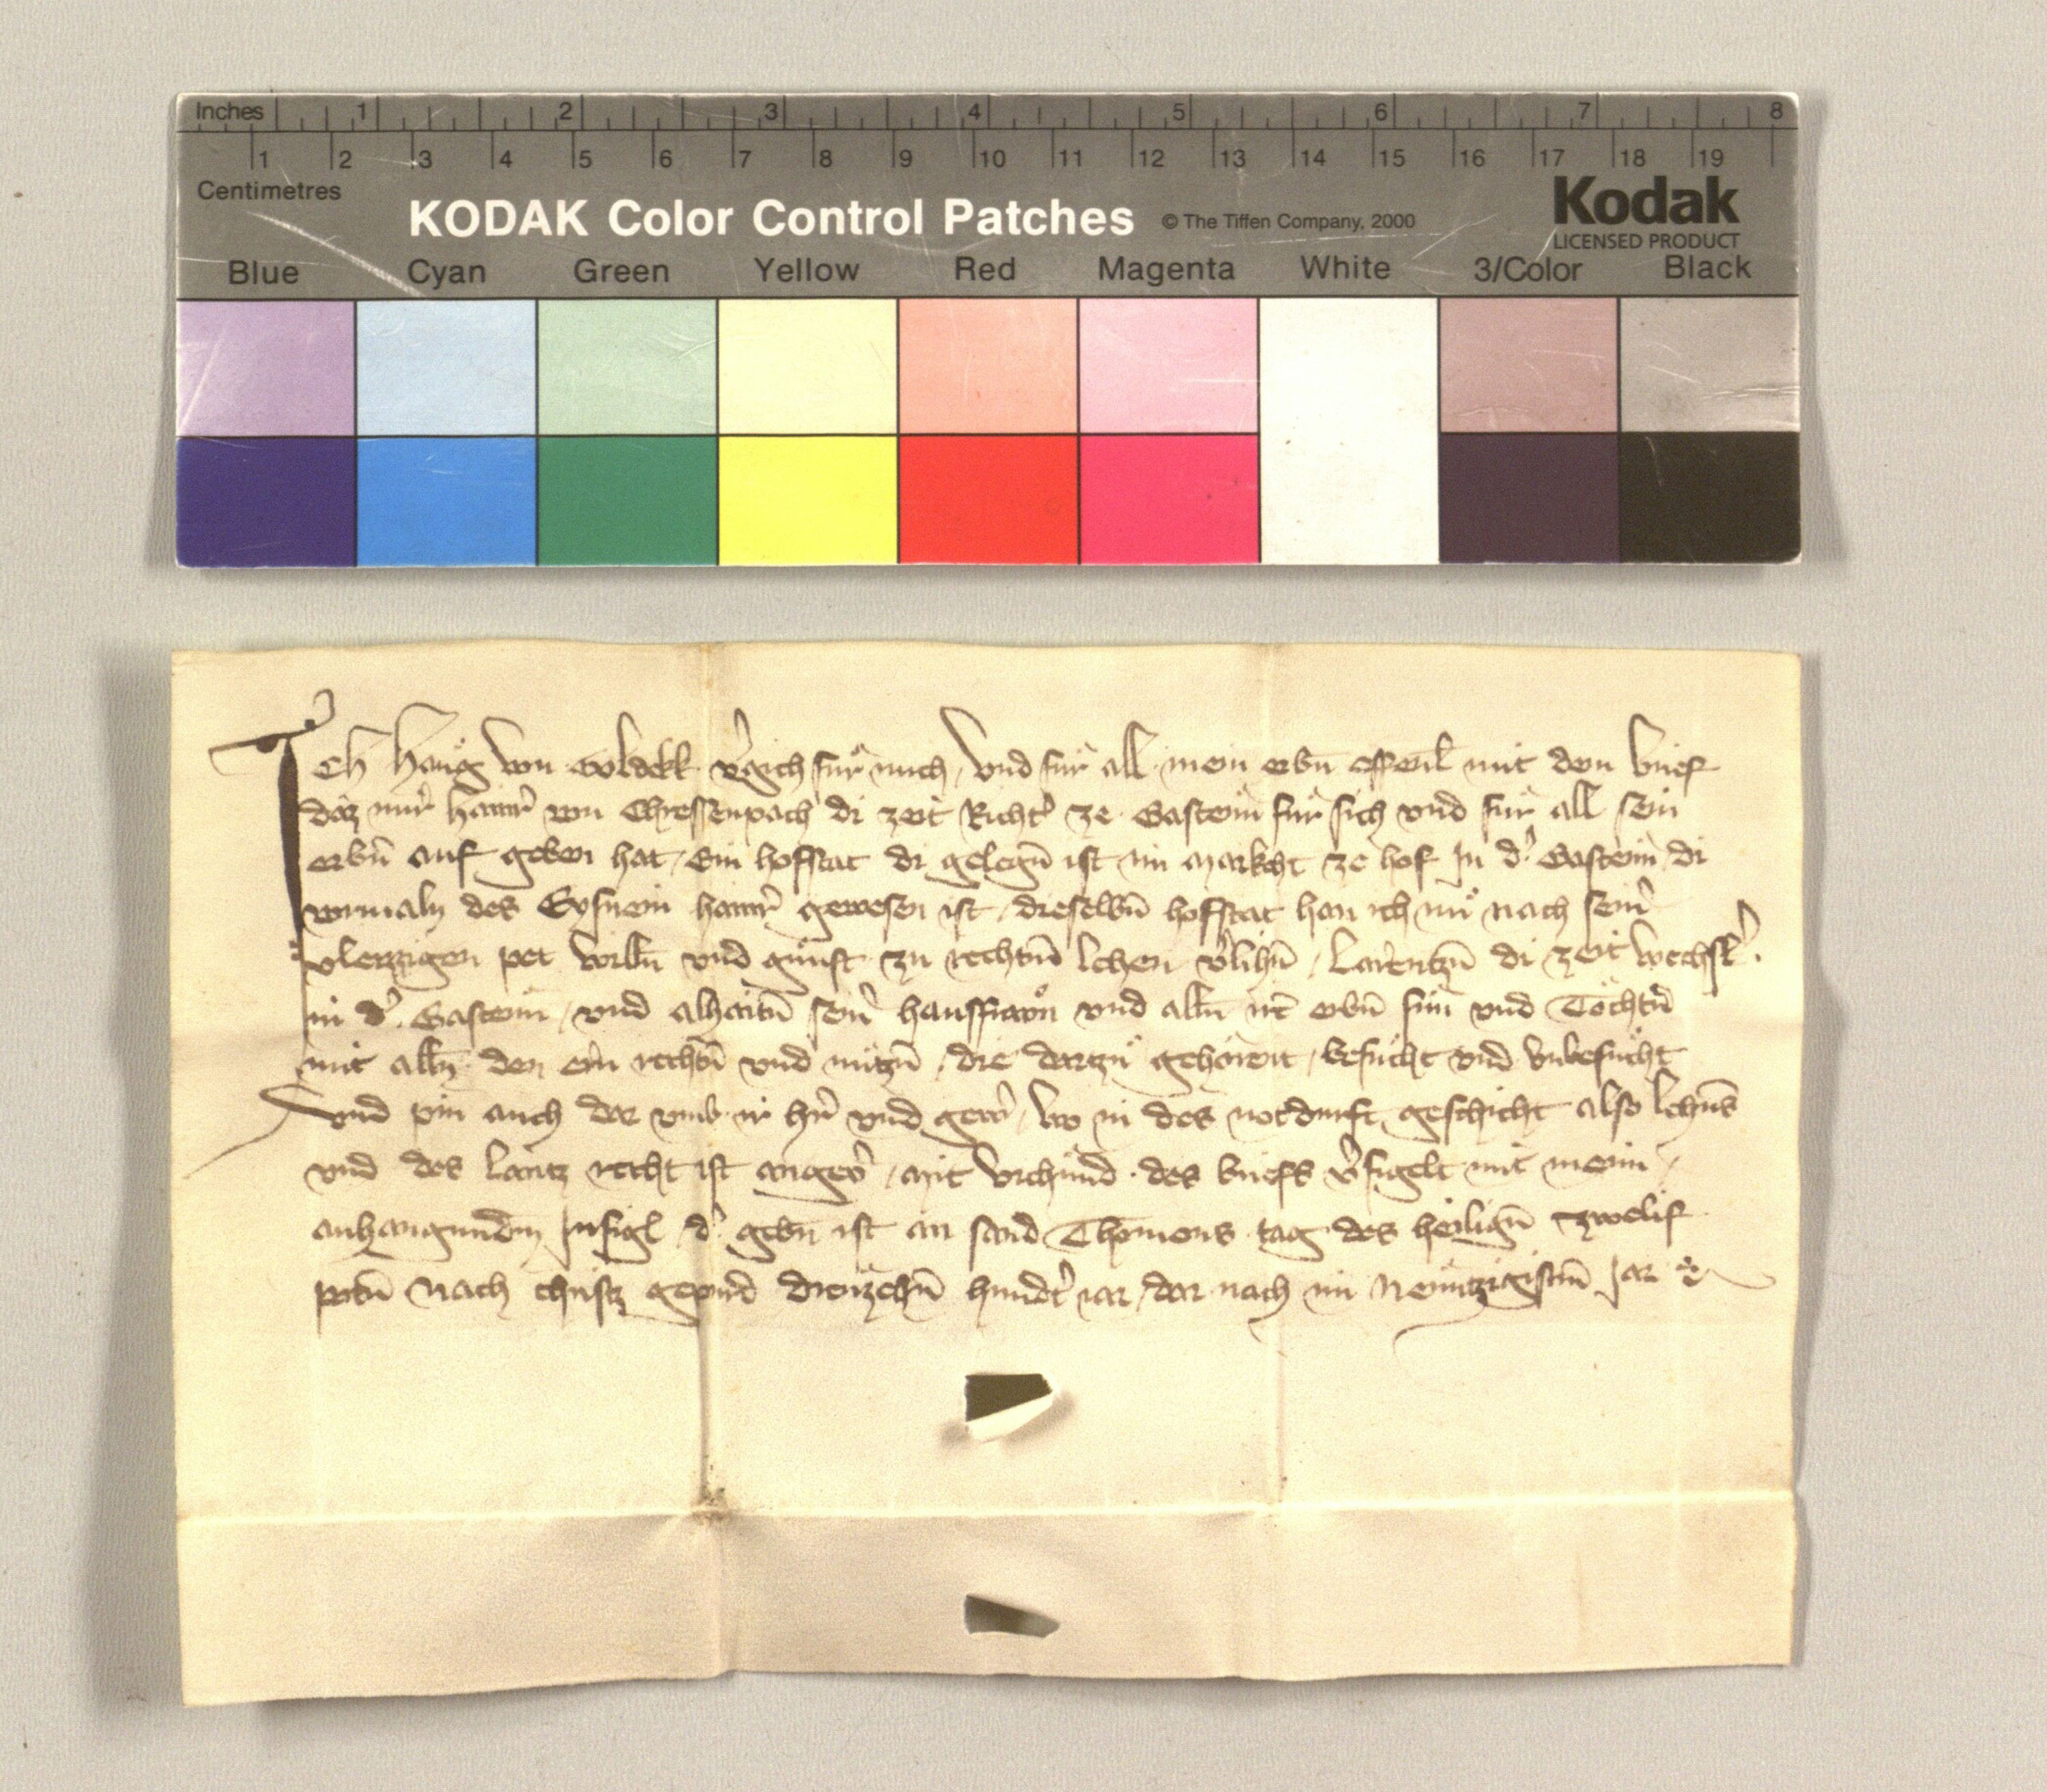 Inches 1 2 3 4 5 6 7 8
1 2 3 4 5 6 7 8 9 10 11 12 13 14 15 16 17 18 19
Centimetres
KODAK Color Control Patches © The Tiffen Company, 2000 Kodak
LICENSED PRODUCT
Blue Cyan Green Yellow Red Magenta White 3/Color Black
Ich Haug von Goldekk v̾gich für mich / vnd für all mein erbn̄ offenl̄ mit dem brief
daz mir hainr̾ von Chressenpach di zeit Richt̾ ze Gastein für sich vnd für all sein
erbn̄ auf geben hat / Ein hofstat di gelegn̄ ist im Markcht ze hof In d̾ Gastein di
vormaln des hainr̾ gewesen ist / dieselbn̄ hofstat han ich nu nach sein̾
vleizzigen pet willn̄ vnd gunst zu rechtm̄ lehen v̾lihn̄ / Larentzn̄ di zeit wechsl̾
in d̾ Gastein / vnd alhaitn̄ sein̾ hausfrawn vnd alln̄ irn̄ erbn̄ sün vnd Töchtn̾
mit alln̄ den ern rechtn̄ vnd nützn̄ / die dartzu gehörent / besucht vnd vnbesucht
vnd pin auch dar vmb ir hr̄ vnd gew̾ / wo in des notdurft geschicht also lehn̄s
vnd des lantz recht ist ange̾ / Mit vrchund des briefs v̾sigelt mit meim
anhangundm̄ Insigl d̾ gebn̄ ist an sand Thomans tag des heilign̄ zwelif
potn̄ Nach christz gepurd drewzehn̄ hundt̾ iar / dar nach im Newntzigistm̄ Jar